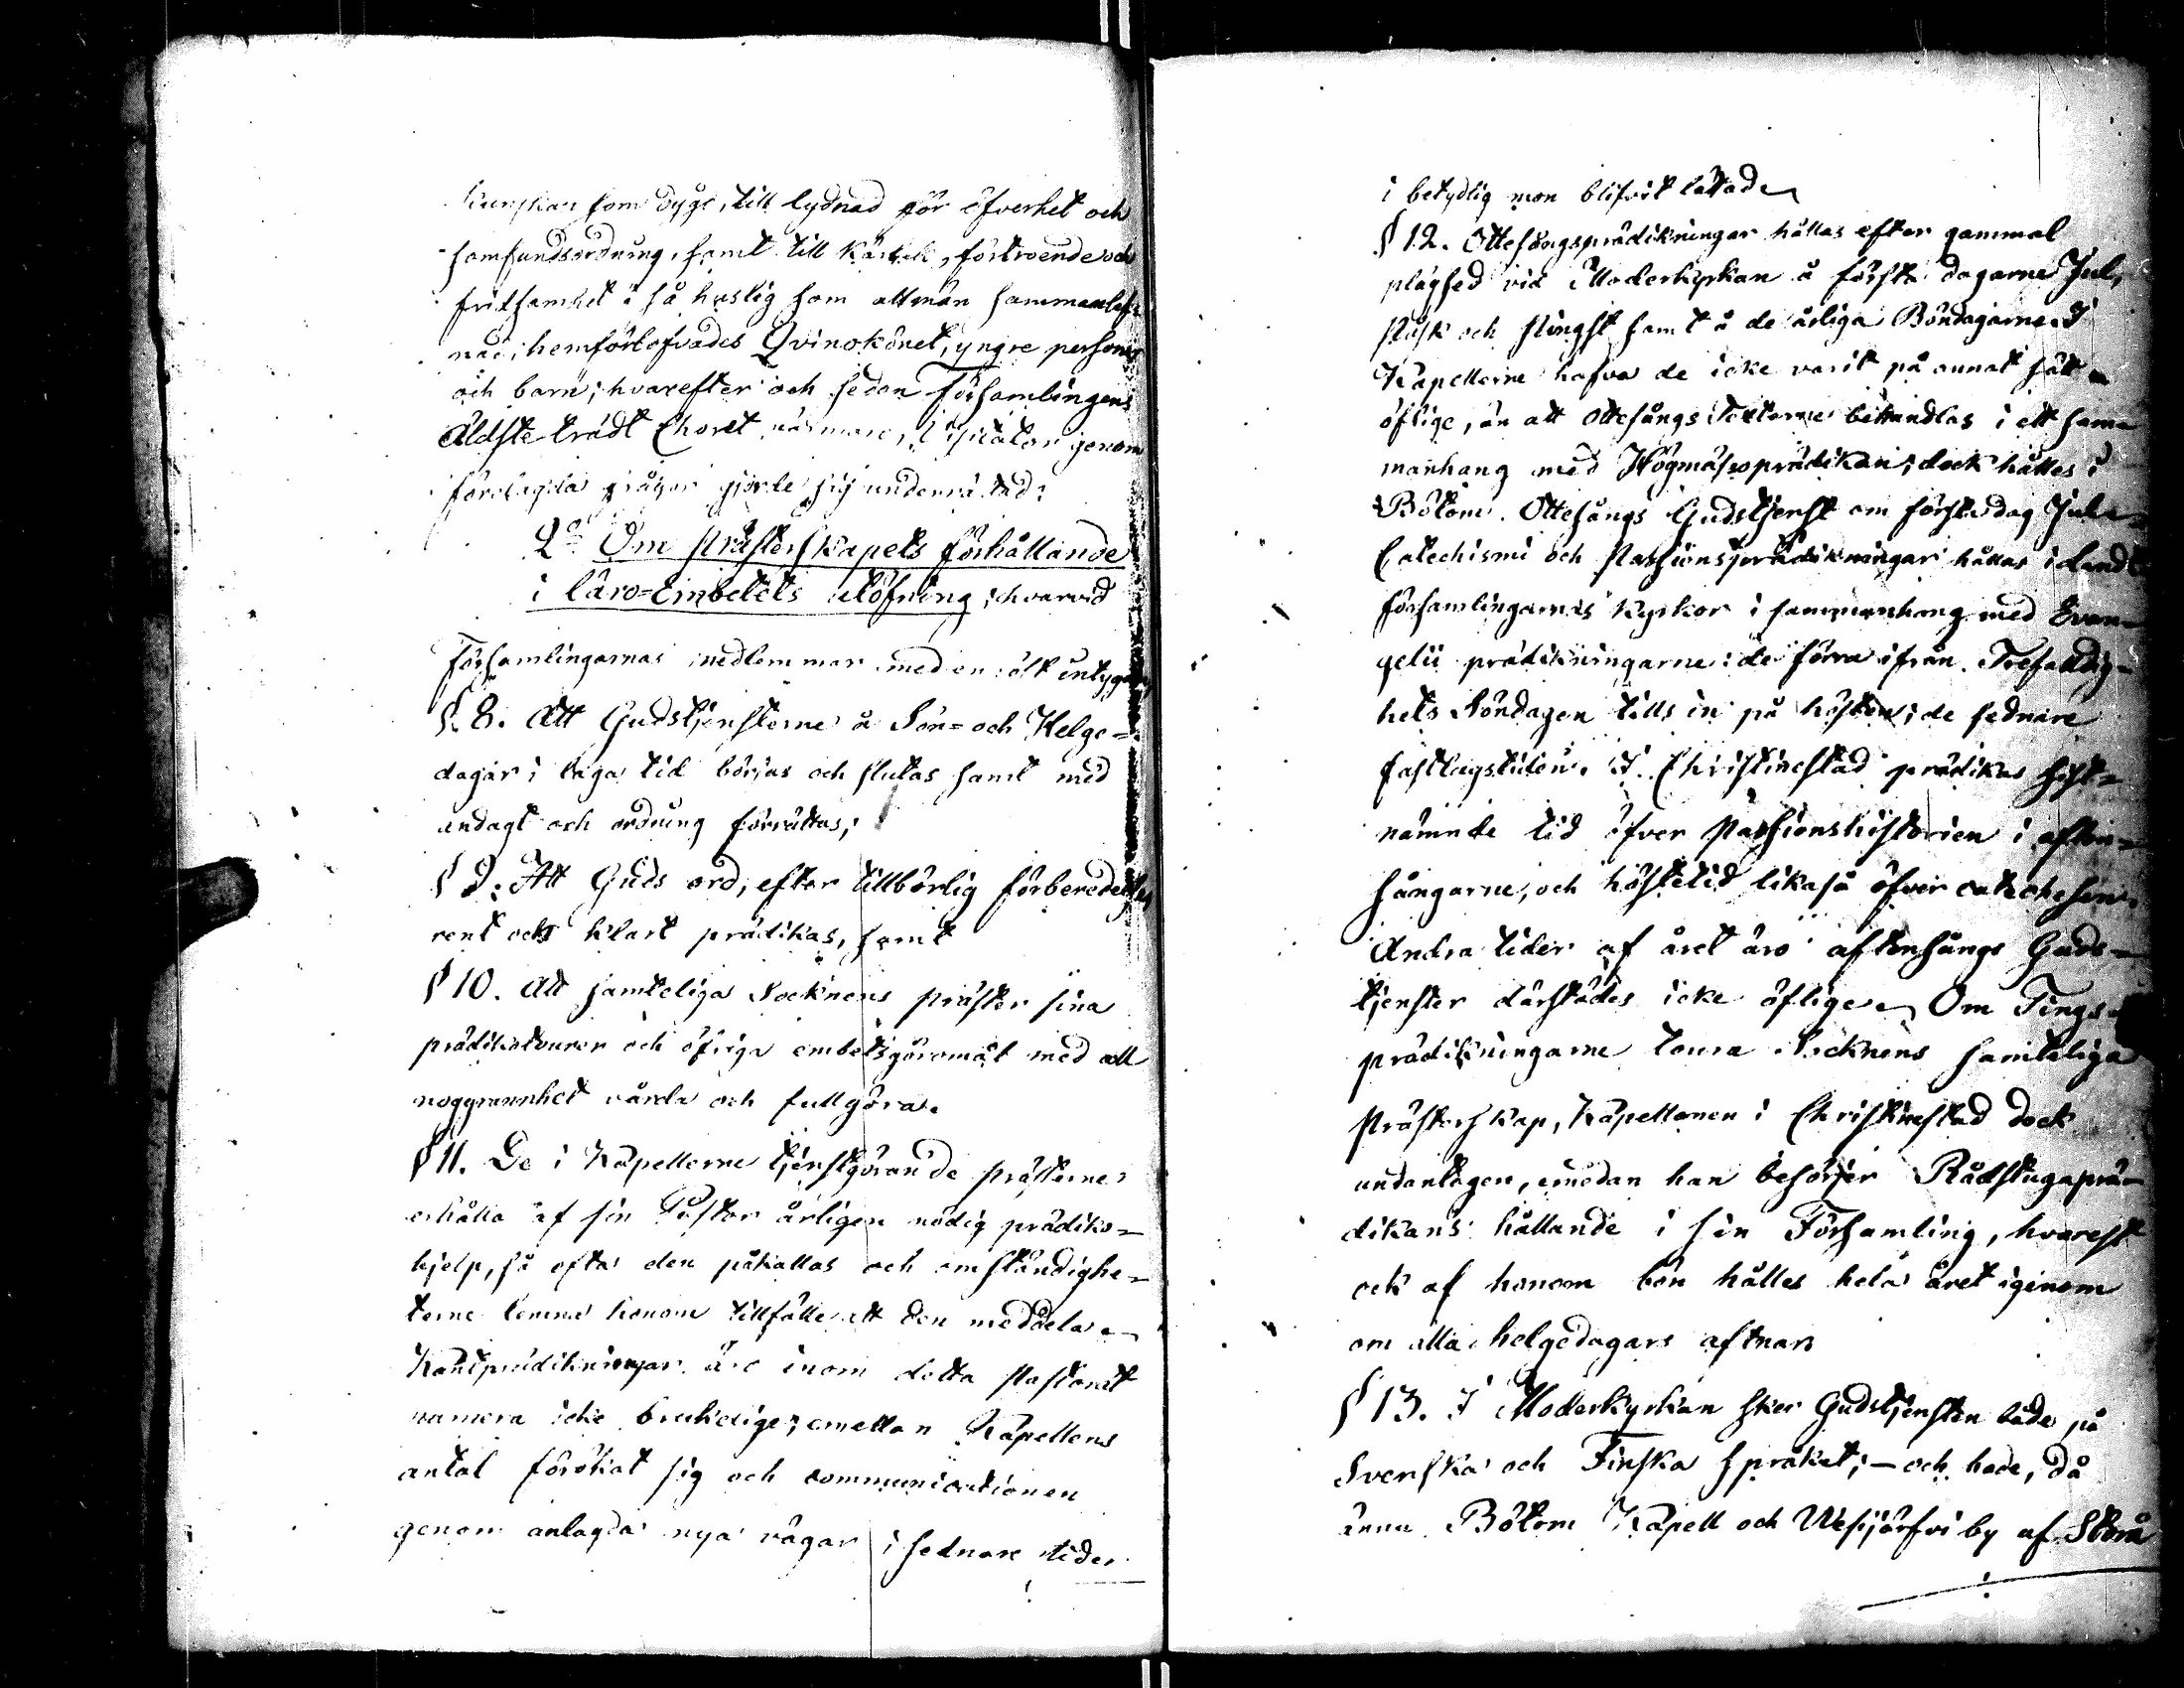 kunskap som dygd, till lydnad för öfverhet och
samfundsordning, samt till kärlek, förtroende och
fridsamhet i så huslig som allmän sammanlef-
nad; hemförlofvades Qvinokönet, yngre personer
och barn; hvarefter och sedan Församlingens
Äldste trädt Choret närmare, Visitator genom
föreslagda frågor gjorde sig underrättad:
2o Om Prästerskapets förhållande
i läro-Embetets utöfning; hvarvid
Församlingarnas medlemmar med en röst intygade,
§. 8. Att Gudstjensterne å Sön- och Helge-
dagar i laga tid börjas och slutas samt med
andagt och ordning förrättas;
§ 9. Att Guds ord, efter tillbörlig förberedelse,
rent och klart prädikas, samt
§ 10. Att samteliga Socknens präster sina
prädikoturer och öfriga embetsgöromål med all
noggrannhet vårda och fullgöra.
§ 11. De i Kapellerne tjenstgörande prästerne
erhålla af sin Pastor årligen nödig prädiko-
hjelp, så ofta den påkallas och omständighe-
terne lemna honom tillfälle att den meddela.
Kantprädikningar äro inom detta Pastorat
numera icke brukelige, emedan Kapellens
antal förökat sig och communicationen
genom anlagda nya vägar i sednare tider
i betydlig mon blifvit lättad.
§ 12. Ottesångsprädikningar hållas efter gammal
plägsed vid Moderkyrkan å första dagarne Jul,
Påsk och Pingst samt å de årliga Böndagarne. I
Kapellerne hafva de icke varit på annat sätt
öflige, än att Ottesångs Texterne behandlas i ett sam-
manhang med Högmässoprädikan; dock hålles i
Bötom Ottesångs Gudstjenst om första dag Jul.
Catechismi och Passionsprädikningar hållas i Lands
församlingarnas kyrkor i sammanhang med Evan-
gelii prädikningarne: de förra ifrån Trefaldig-
hets Söndagen tills in på hösten; de sednare
fastlagstiden. I Christinestad prädikas sist-
nämnde tid öfver Passionshistorien i afton-
sångarne, och hösttid likaså öfver catechesen.
Andra tider af året äro aftonsångs Guds-
tjenster därstädes icke öflige. Om Tings-
prädikningarne toura Socknens samteliga
Prästerskap, Kapellanen i Christinestad dock
undantagen, emedan han besörjer Rådstuguprä-
dikans hållande i sin Församling, hvarest
ock af honom bön hålles hela året igenom
om alla helgedagars aftnar.
§ 13. I Moderkyrkan sker Gudstjensten både på
Svenska och Finska språket; – och hade, då
ännu Bötom Kapell och Wesijärfvi by af Storå